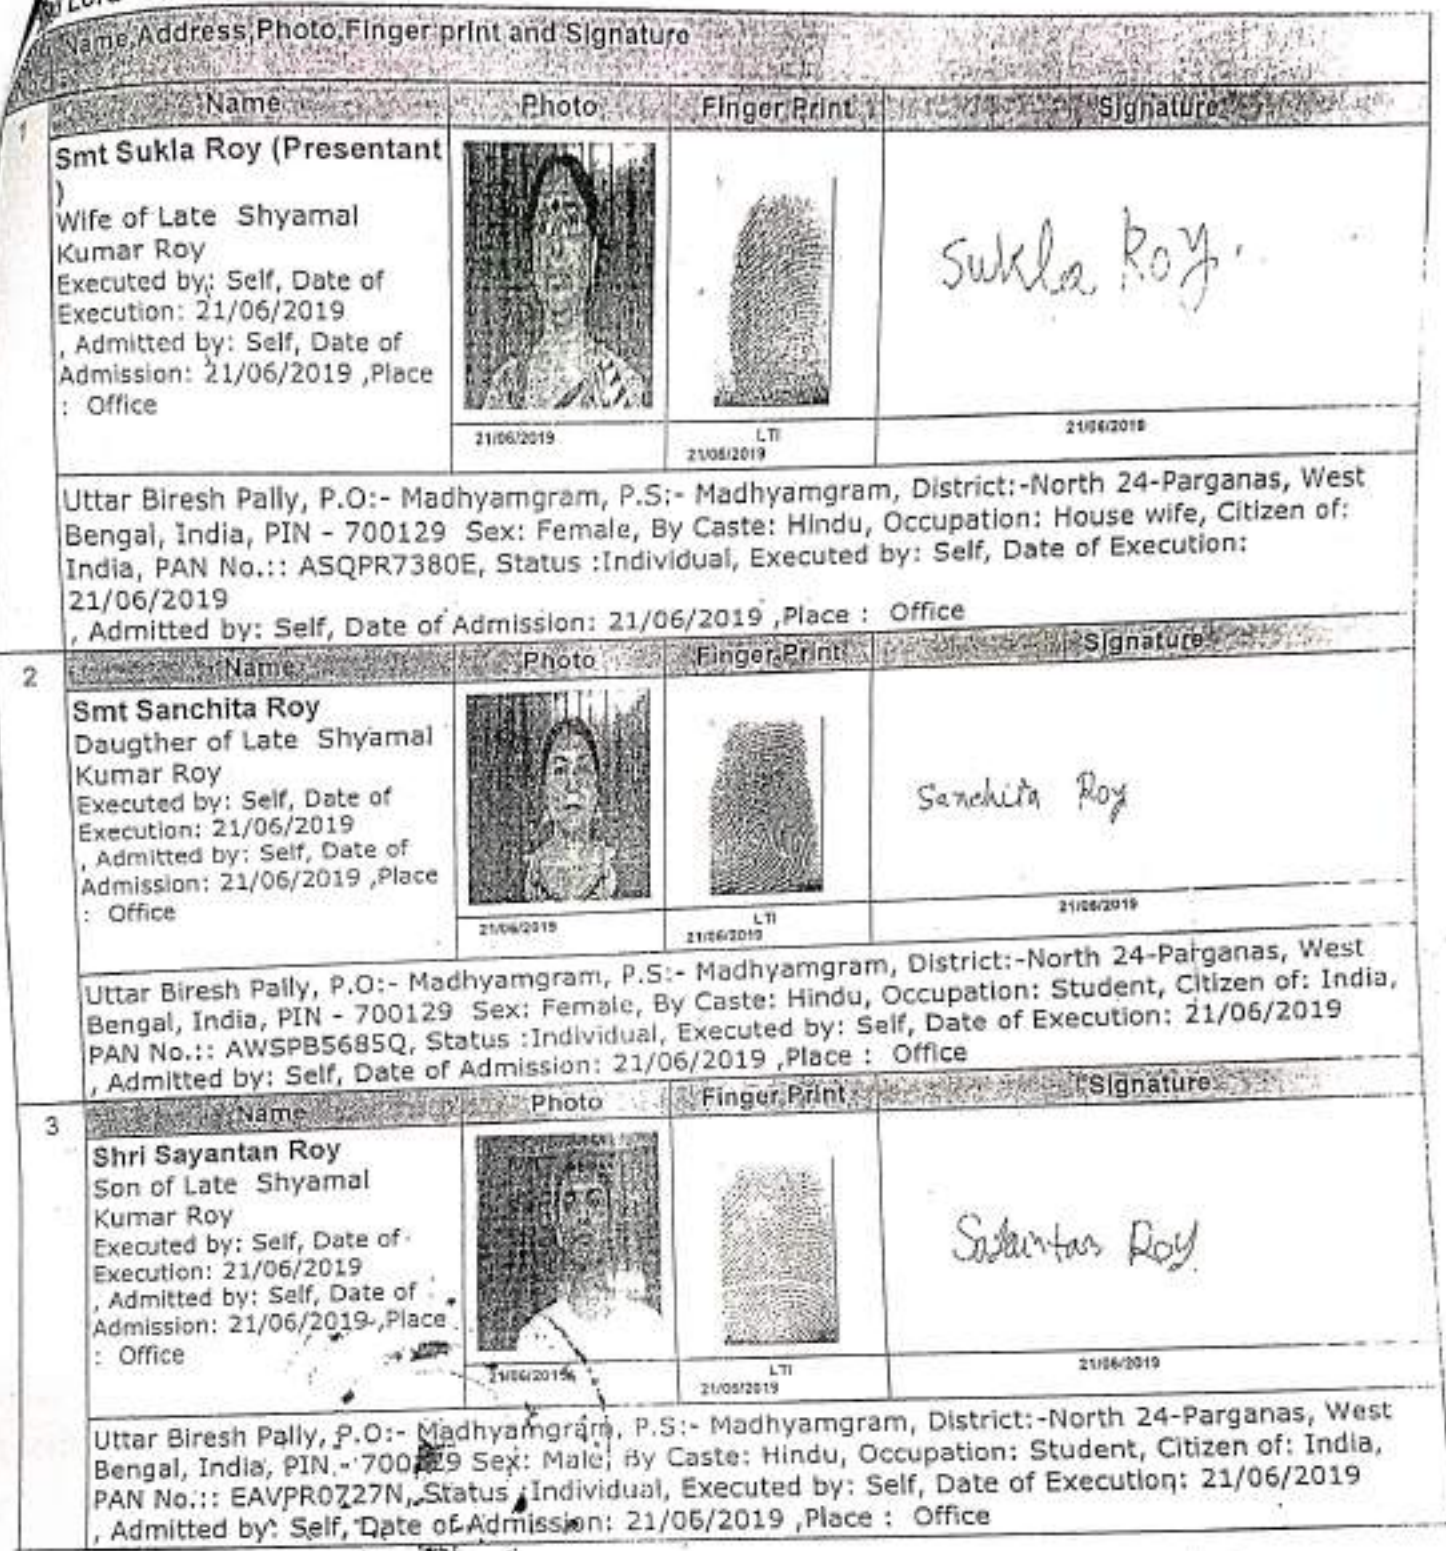 Name,Address,Photo,Finger print and Signature
Name Photo Finger Print Signature
1
Smt Sukla Roy (Presentant
)
Wife of Late Shyamal
Kumar Roy
Executed by: Self, Date of
Execution: 21/06/2019
, Admitted by: Self, Date of
Admission: 21/06/2019 ,Place
: Office
Sukla Roy.
21/06/2019
LTI
21/06/2019
21/06/2019
Uttar Biresh Pally, P.O:- Madhyamgram, P.S:- Madhyamgram, District:-North 24-Parganas, West
Bengal, India, PIN - 700129 Sex: Female, By Caste: Hindu, Occupation: House wife, Citizen of:
India, PAN No.:: ASQPR7380E, Status :Individual, Executed by: Self, Date of Execution:
21/06/2019
, Admitted by: Self, Date of Admission: 21/06/2019 ,Place : Office
2
Name Photo Finger Print Signature
Smt Sanchita Roy
Daugther of Late Shyamal
Kumar Roy
Executed by: Self, Date of
Execution: 21/06/2019
, Admitted by: Self, Date of
Admission: 21/06/2019 ,Place
: Office
Sanchita Roy
21/06/2019
LTI
21/06/2019
21/06/2019
Uttar Biresh Pally, P.O:- Madhyamgram, P.S:- Madhyamgram, District:-North 24-Parganas, West
Bengal, India, PIN - 700129 Sex: Female, By Caste: Hindu, Occupation: Student, Citizen of: India,
PAN No.:: AWSPB5685Q, Status :Individual, Executed by: Self, Date of Execution: 21/06/2019
, Admitted by: Self, Date of Admission: 21/06/2019 ,Place : Office
3
Name Photo Finger Print Signature
Shri Sayantan Roy
Son of Late Shyamal
Kumar Roy
Executed by: Self, Date of
Execution: 21/06/2019
, Admitted by: Self, Date of
Admission: 21/06/2019 ,Place
: Office
Roy
21/06/2019
LTI
21/06/2019
21/06/2019
Uttar Biresh Pally, P.O:- Madhyamgram, P.S:- Madhyamgram, District:-North 24-Parganas, West
Bengal, India, PIN - 700129 Sex: Male, By Caste: Hindu, Occupation: Student, Citizen of: India,
PAN No.:: Status :Individual, Executed by: Self, Date of Execution: 21/06/2019
, Admitted by: Self, Date of Admission: 21/06/2019 ,Place : Office